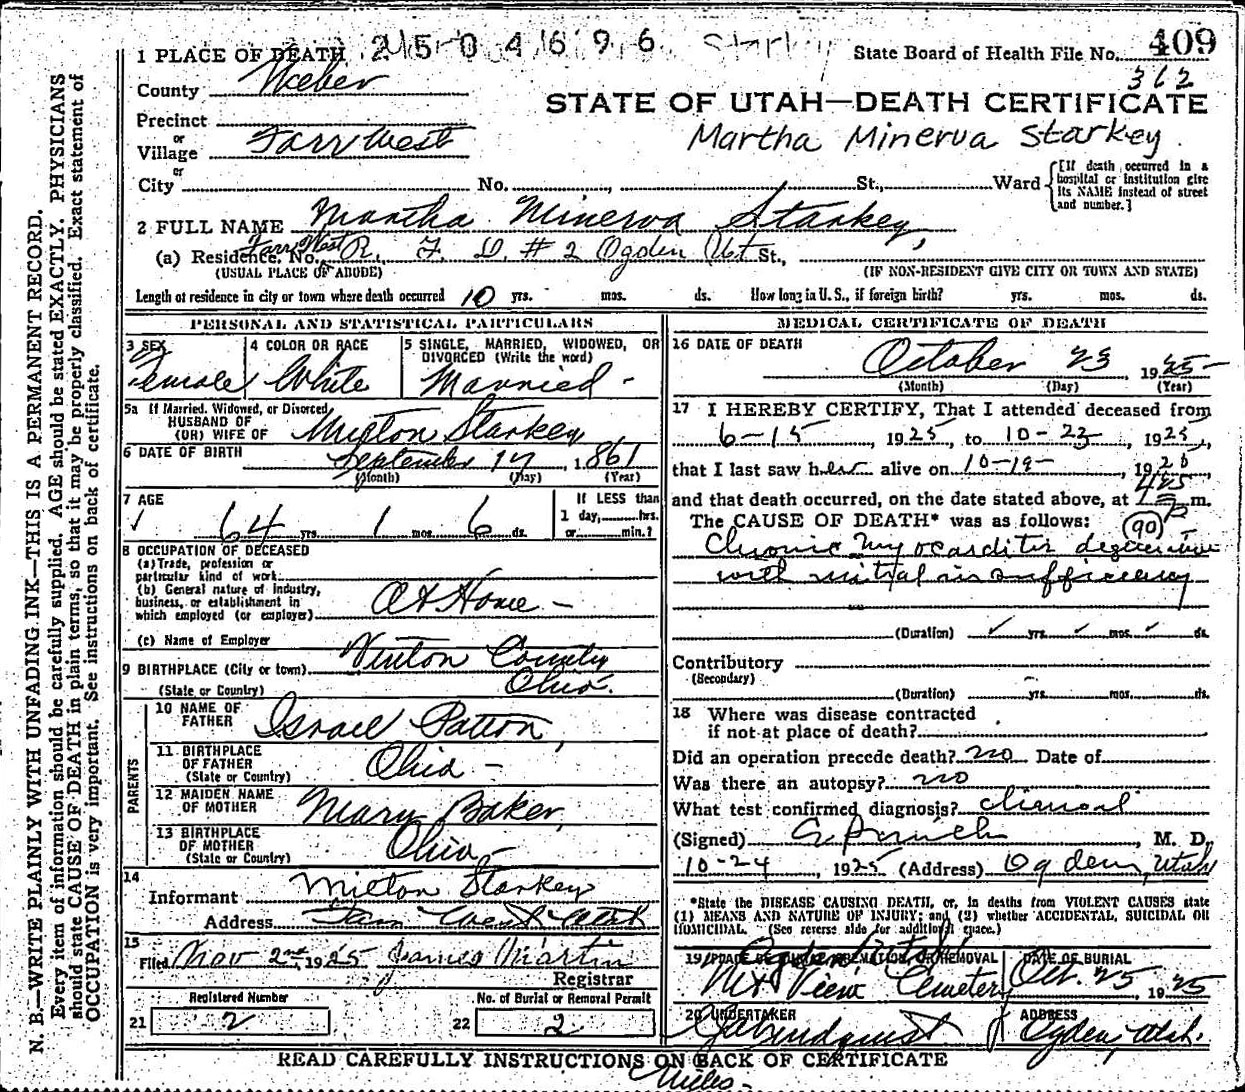 1 PLACE OF DEATH 2504696 Starkey State Board of Health File No. 409
County Weber 362
STATE OF UTAH—DEATH CERTIFICATE
Precinct
or
Village Farr West Martha Minerva Starkey
or
City No. , St., Ward {[If death occurred in a hospital or institution give its NAME instead of street and number.]
2 FULL NAME Martha Minerva Starkey,
(a) Residence. No. Farr West R. F. D. # 2 Ogden Ut St.,
(USUAL PLACE OF ABODE) (IF NON-RESIDENT GIVE CITY OR TOWN AND STATE)
Length of residence in city or town where death occurred 10 yrs. mos. ds. How long in U.S., if foreign birth? yrs. mos. ds.
PERSONAL AND STATISTICAL PARTICULARS
3 SEX 4 COLOR OR RACE 5 SINGLE, MARRIED, WIDOWED, OR
DIVORCED (Write the word)
Female White Married -
5a If Married, Widowed, or Divorced
HUSBAND OF
(OR) WIFE OF Milton Starkey
6 DATE OF BIRTH September 17, 1861
(Month) (Day) (Year)
7 AGE If LESS than
64 yrs. 1 mos. 6 ds. 1 day, hrs.
or min.?
8 OCCUPATION OF DECEASED
(a) Trade, profession or
particular kind of work
(b) General nature of industry,
business, or establishment in
which employed (or employer) At Home -
(c) Name of Employer
9 BIRTHPLACE (City or town) Vinton County
(State or Country) Ohio.
PARENTS
10 NAME OF
FATHER Israel Patton,
11 BIRTHPLACE
OF FATHER
(State or Country) Ohio -
12 MAIDEN NAME
OF MOTHER Mary Baker,
13 BIRTHPLACE
OF MOTHER
(State or Country) Ohio -
14
Informant Milton Starkey
Address Farr West Utah
15
Filed Nov 2nd, 1925 James Martin
Registrar
Registered Number No. of Burial or Removal Permit
21 2 22 2
MEDICAL CERTIFICATE OF DEATH
16 DATE OF DEATH
October 23 1925
(Month) (Day) (Year)
17 I HEREBY CERTIFY, That I attended deceased from
6-15, 1925, to 10-23, 1925,
that I last saw her alive on 10-19-, 192
and that death occurred, on the date stated above, at p m.
The CAUSE OF DEATH* was as follows: (90)
Chronic myocarditis
with mitral insufficiency
(Duration) yrs. mos. ds.
Contributory
(Secondary)
(Duration) yrs. mos. ds.
18 Where was disease contracted
if not at place of death?
Did an operation precede death? no Date of
Was there an autopsy? no
What test confirmed diagnosis? clinical
(Signed) M. D.
10-24, 1925 (Address) Ogden, Utah
*State the DISEASE CAUSING DEATH, or, in deaths from VIOLENT CAUSES state
(1) MEANS AND NATURE OF INJURY; and (2) whether ACCIDENTAL, SUICIDAL OR
HOMICIDAL. (See reverse side for additional space.)
19 PLACE OF BURIAL, CREMATION, OR REMOVAL DATE OF BURIAL
Ogden Utah
Mt View Cemetery Oct. 25, 1925
20 UNDERTAKER ADDRESS
Lindquist Ogden, Utah.
READ CAREFULLY INSTRUCTIONS ON BACK OF CERTIFICATE
Miles.
N. B.—WRITE PLAINLY WITH UNFADING INK—THIS IS A PERMANENT RECORD.
Every item of information should be carefully supplied. AGE should be stated EXACTLY. PHYSICIANS
should state CAUSE OF DEATH in plain terms, so that it may be properly classified. Exact statement of
OCCUPATION is very important. See instructions on back of certificate.